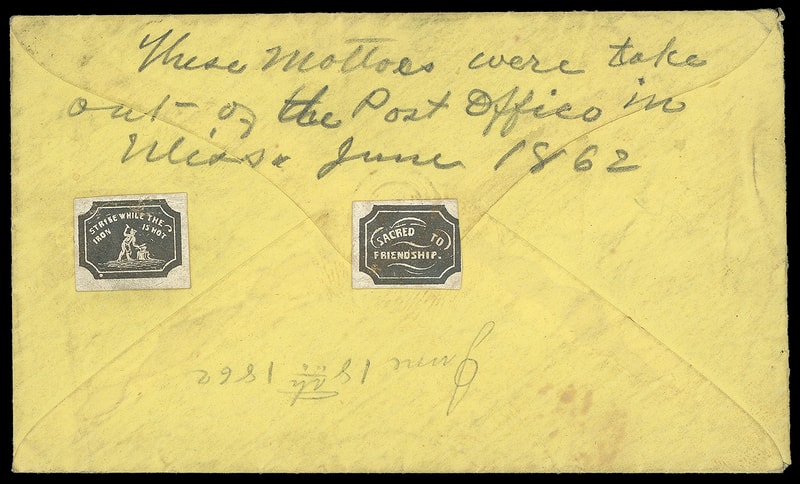 These Mottoes were take
out of the Post Office in
Miss. June 1862
STRIKE WHILE THE
IRON IS HOT.
SACRED TO
FRIENDSHIP.
June 18th 1862